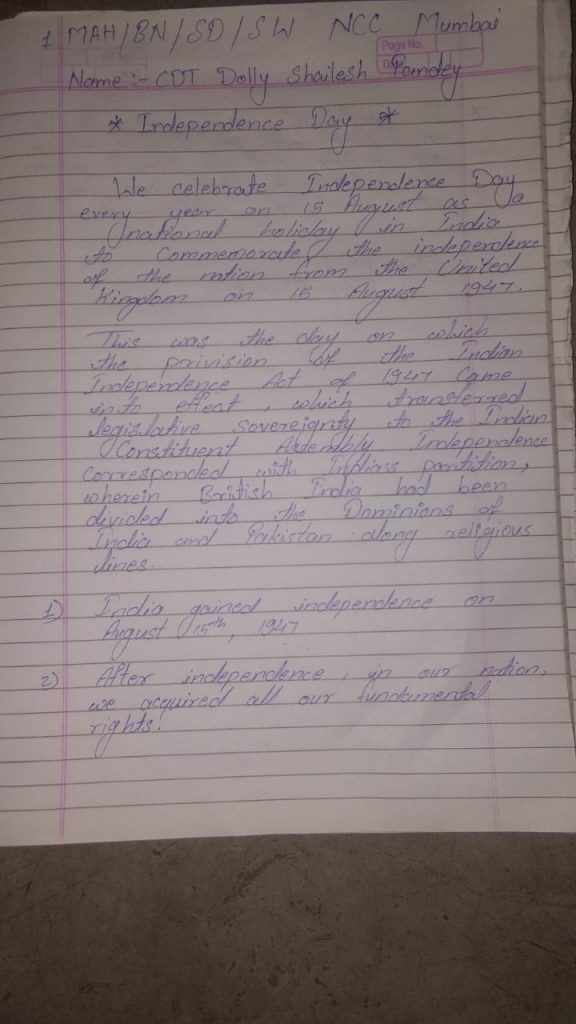 1 MAH/BN/SD/SW NCC Mumbai
Page No.
Name :- CDT Dolly Shailesh Pandey
* Independence Day *
We celebrate Independence Day
every year on 15 August as a
national holiday in India
to commemorate the independence
of the nation from the United
Kingdom on 15 August 1947.
This was the day on which
the privision of the Indian
Independence Act of 1947 Came
into effect, which transferred
legislative sovereignty to the Indian
Constituent Assembly. Independence
Corresponded with India's partition,
wherein British India had been
divided into the Dominions of
India and Pakistan along religious
lines.
1) India gained independence on
August 15th, 1947
2) After independence, in our nation,
we acquired all our fundamental
rights.